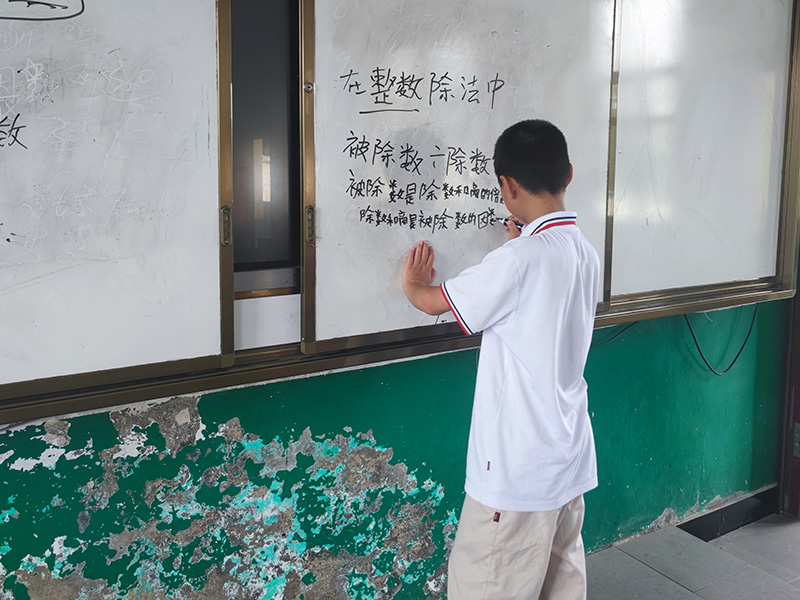 数
在整数除法中
被除数÷除数
被除数是除数和商的倍
除数和商是被除数的因